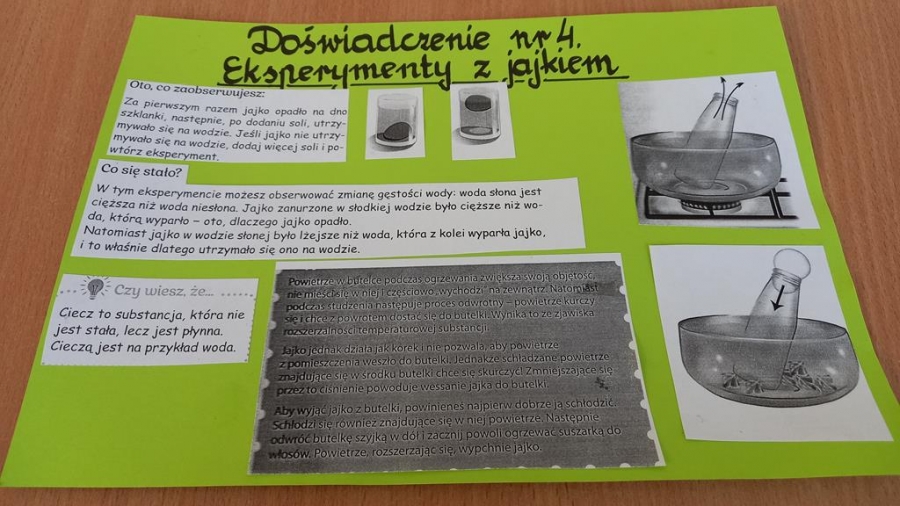 Doświadczenie nr 4.
Eksperymenty z jajkiem
Oto, co zaobserwujesz:
Za pierwszym razem jajko opadło na dno
szklanki, następnie, po dodaniu soli, utrzy-
mywało się na wodzie. Jeśli jajko nie utrzy-
mywało się na wodzie, dodaj więcej soli i po-
wtórz eksperyment.
Co się stało?
W tym eksperymencie możesz obserwować zmianę gęstości wody: woda słona jest
cięższa niż woda niesłona. Jajko zanurzone w słodkiej wodzie było cięższe niż wo-
da, którą wyparło – oto, dlaczego jajko opadło.
Natomiast jajko w wodzie słonej było lżejsze niż woda, która z kolei wyparła jajko,
i to właśnie dlatego utrzymało się ono na wodzie.
Czy wiesz, że...
Ciecz to substancja, która nie
jest stała, lecz jest płynna.
Cieczą jest na przykład woda.
Powietrze w butelce podczas ogrzewania zwiększa swoją objętość,
nie mieści się w niej i częściowo „wychodzi” na zewnątrz. Natomiast
podczas studzenia następuje proces odwrotny – powietrze kurczy
się i chce z powrotem dostać się do butelki. Wynika to ze zjawiska
rozszerzalności temperaturowej substancji.
Jajko jednak działa jak korek i nie pozwala, aby powietrze
z pomieszczenia weszło do butelki. Jednakże schładzane powietrze
znajdujące się w środku butelki chce się skurczyć! Zmniejszające się
przez to ciśnienie powoduje wessanie jajka do butelki.
Aby wyjąć jajko z butelki, powinieneś najpierw dobrze ją schłodzić.
Schłodzi się również znajdujące się w niej powietrze. Następnie
odwróć butelkę szyjką w dół i zacznij powoli ogrzewać suszarką do
włosów. Powietrze, rozszerzając się, wypchnie jajko.